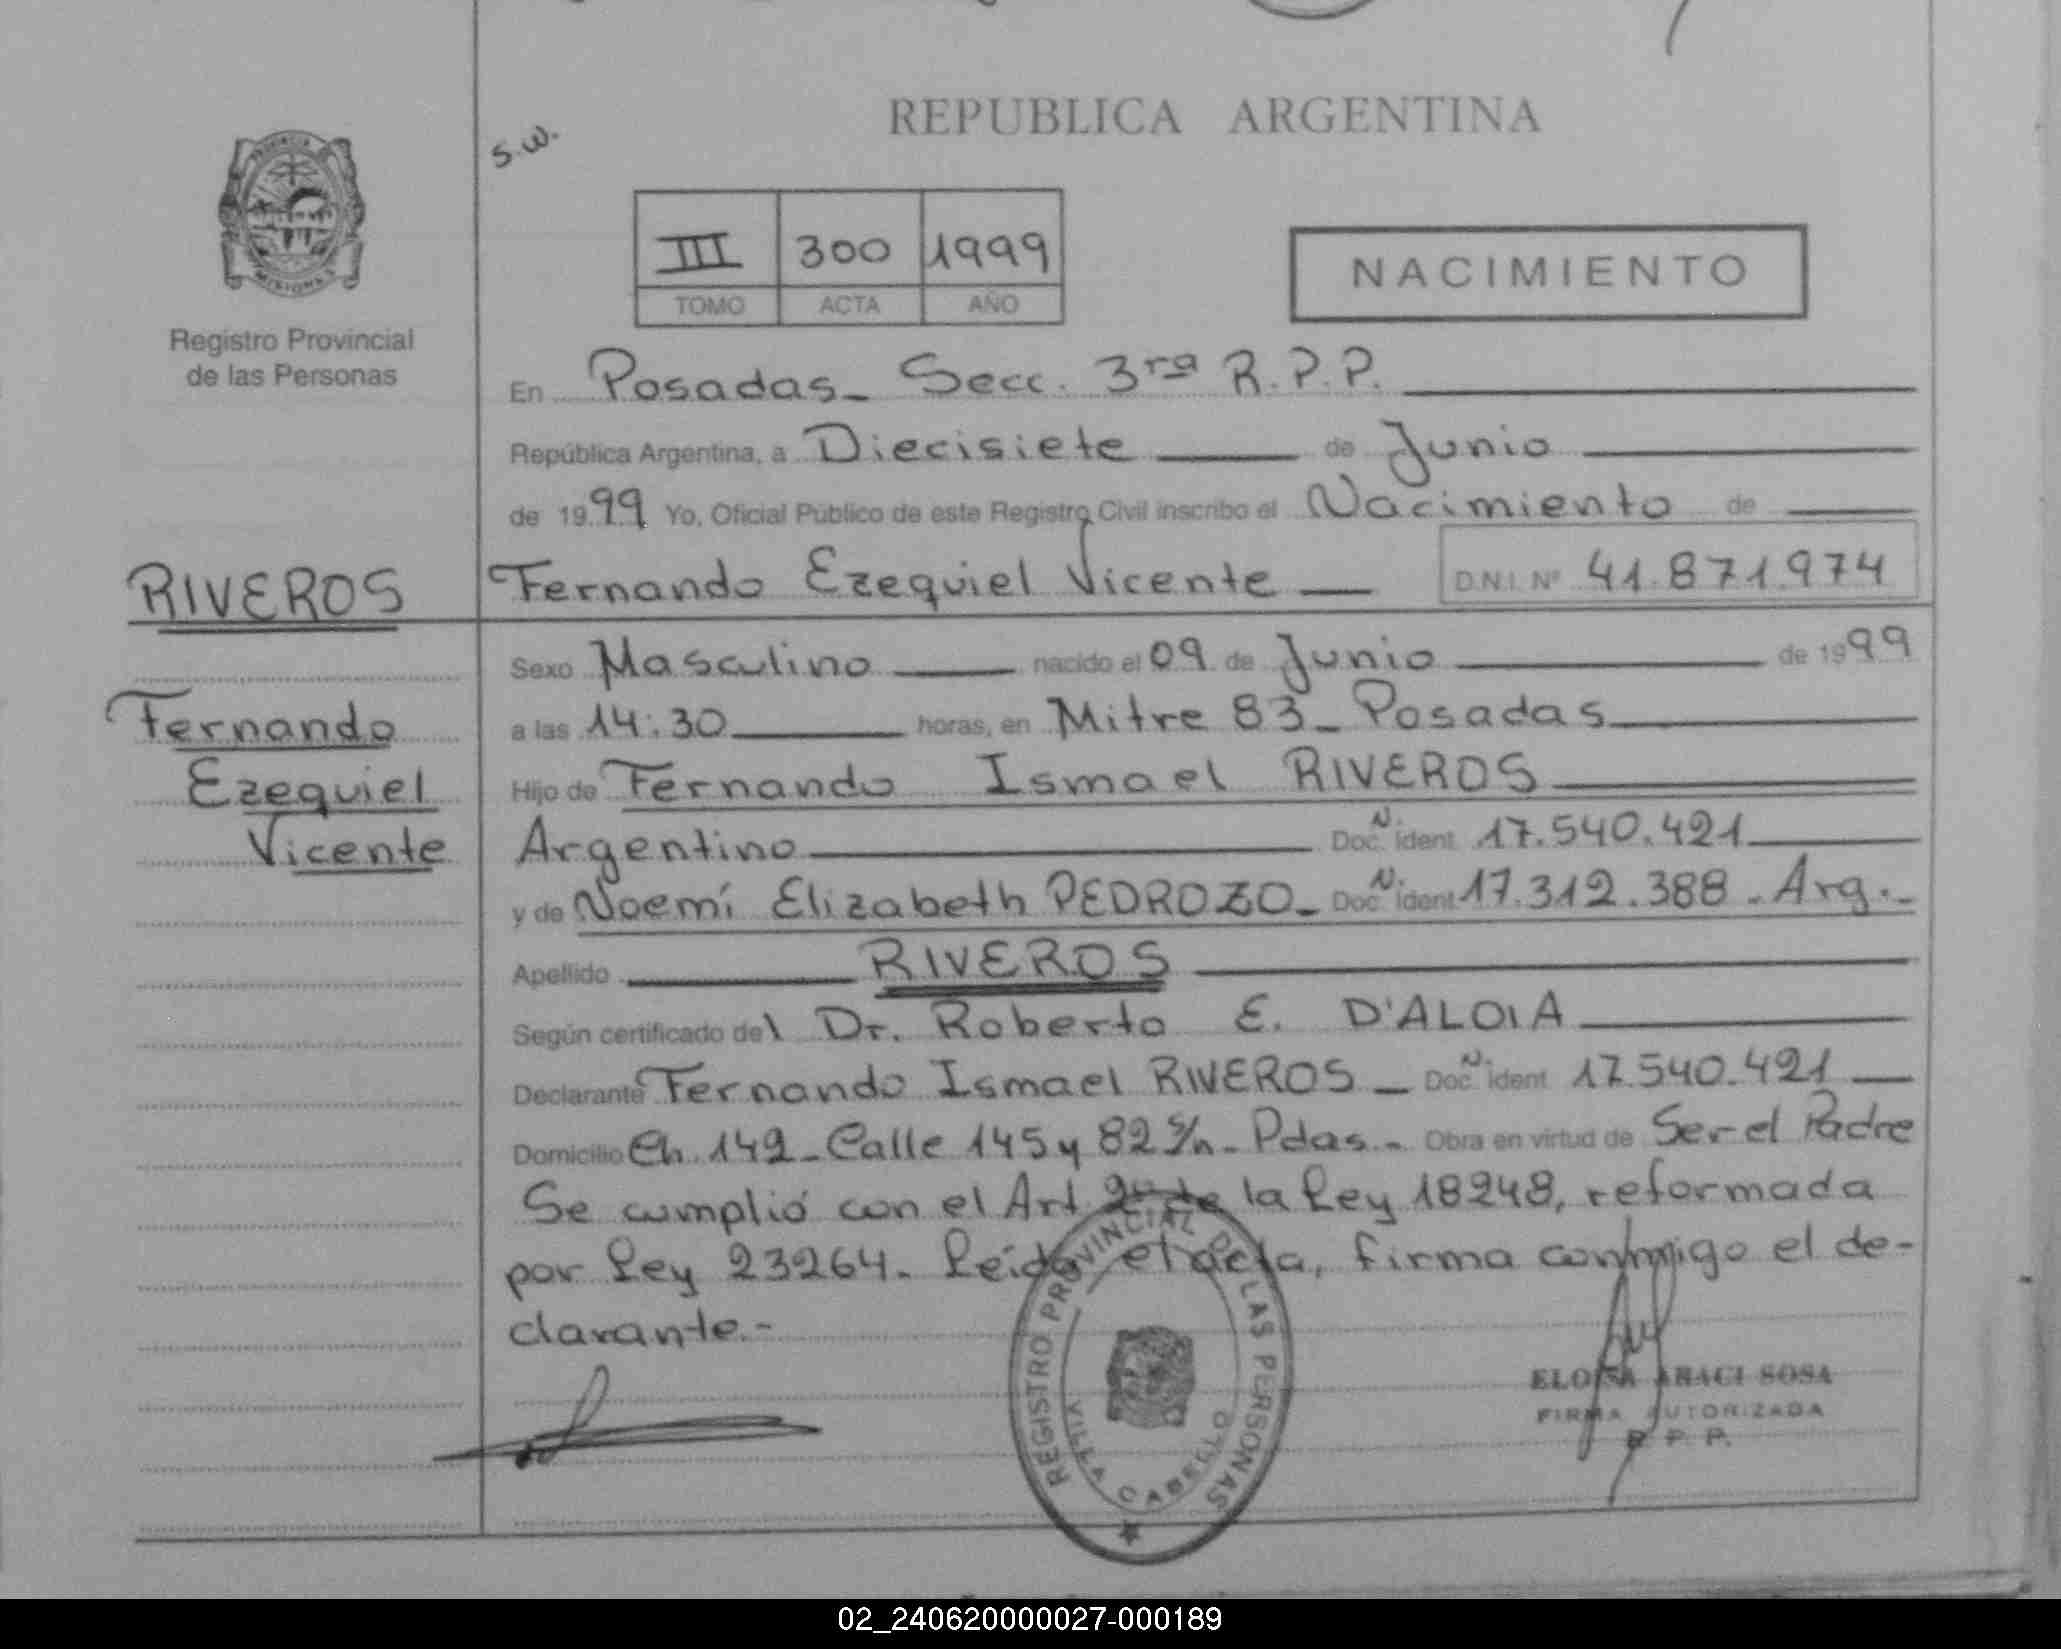 REPUBLICA ARGENTINA
s.w.
PROVINCIA
MISIONES
Registro Provincial
de las Personas
III 300 1999
TOMO ACTA AÑO
NACIMIENTO
En Posadas_ Secc. 3ra R.P.P.
República Argentina, a Diecisiete de Junio
de 1999 Yo, Oficial Público de este Registro Civil inscribo el Nacimiento de
RIVEROS
Fernando Ezequiel Vicente D.N.I. Nº 41.871.974
Sexo Masculino nacido el 09 de Junio de 1999
Fernando
Ezequiel
Vicente
a las 14:30 horas, en Mitre 83_ Posadas
Hijo de Fernando Ismael RIVEROS
Argentino Doc. N. Ident. 17.540.421
y de Noemí Elizabeth PEDROZO_ Doc. N. Ident. 17.312.388 - Arg.-
Apellido RIVEROS
Según certificado del Dr. Roberto E. D'ALOIA
Declarante Fernando Ismael RIVEROS _ Doc. N. Ident. 17.540.421
Domicilio Ch. 149_ Calle 145 y 82 S/n - Pdas.- Obra en virtud de Ser el Padre
Se cumplió con el Art. de la Ley 18248, reformada
por Ley 23264. Leída el acta, firma conmigo el de-
clarante.-
REGISTRO PROVINCIAL DE LAS PERSONAS
VILLA CABELLO
ELOISA ARACI SOSA
FIRMA AUTORIZADA
R. P. P.
02_240620000027-000189